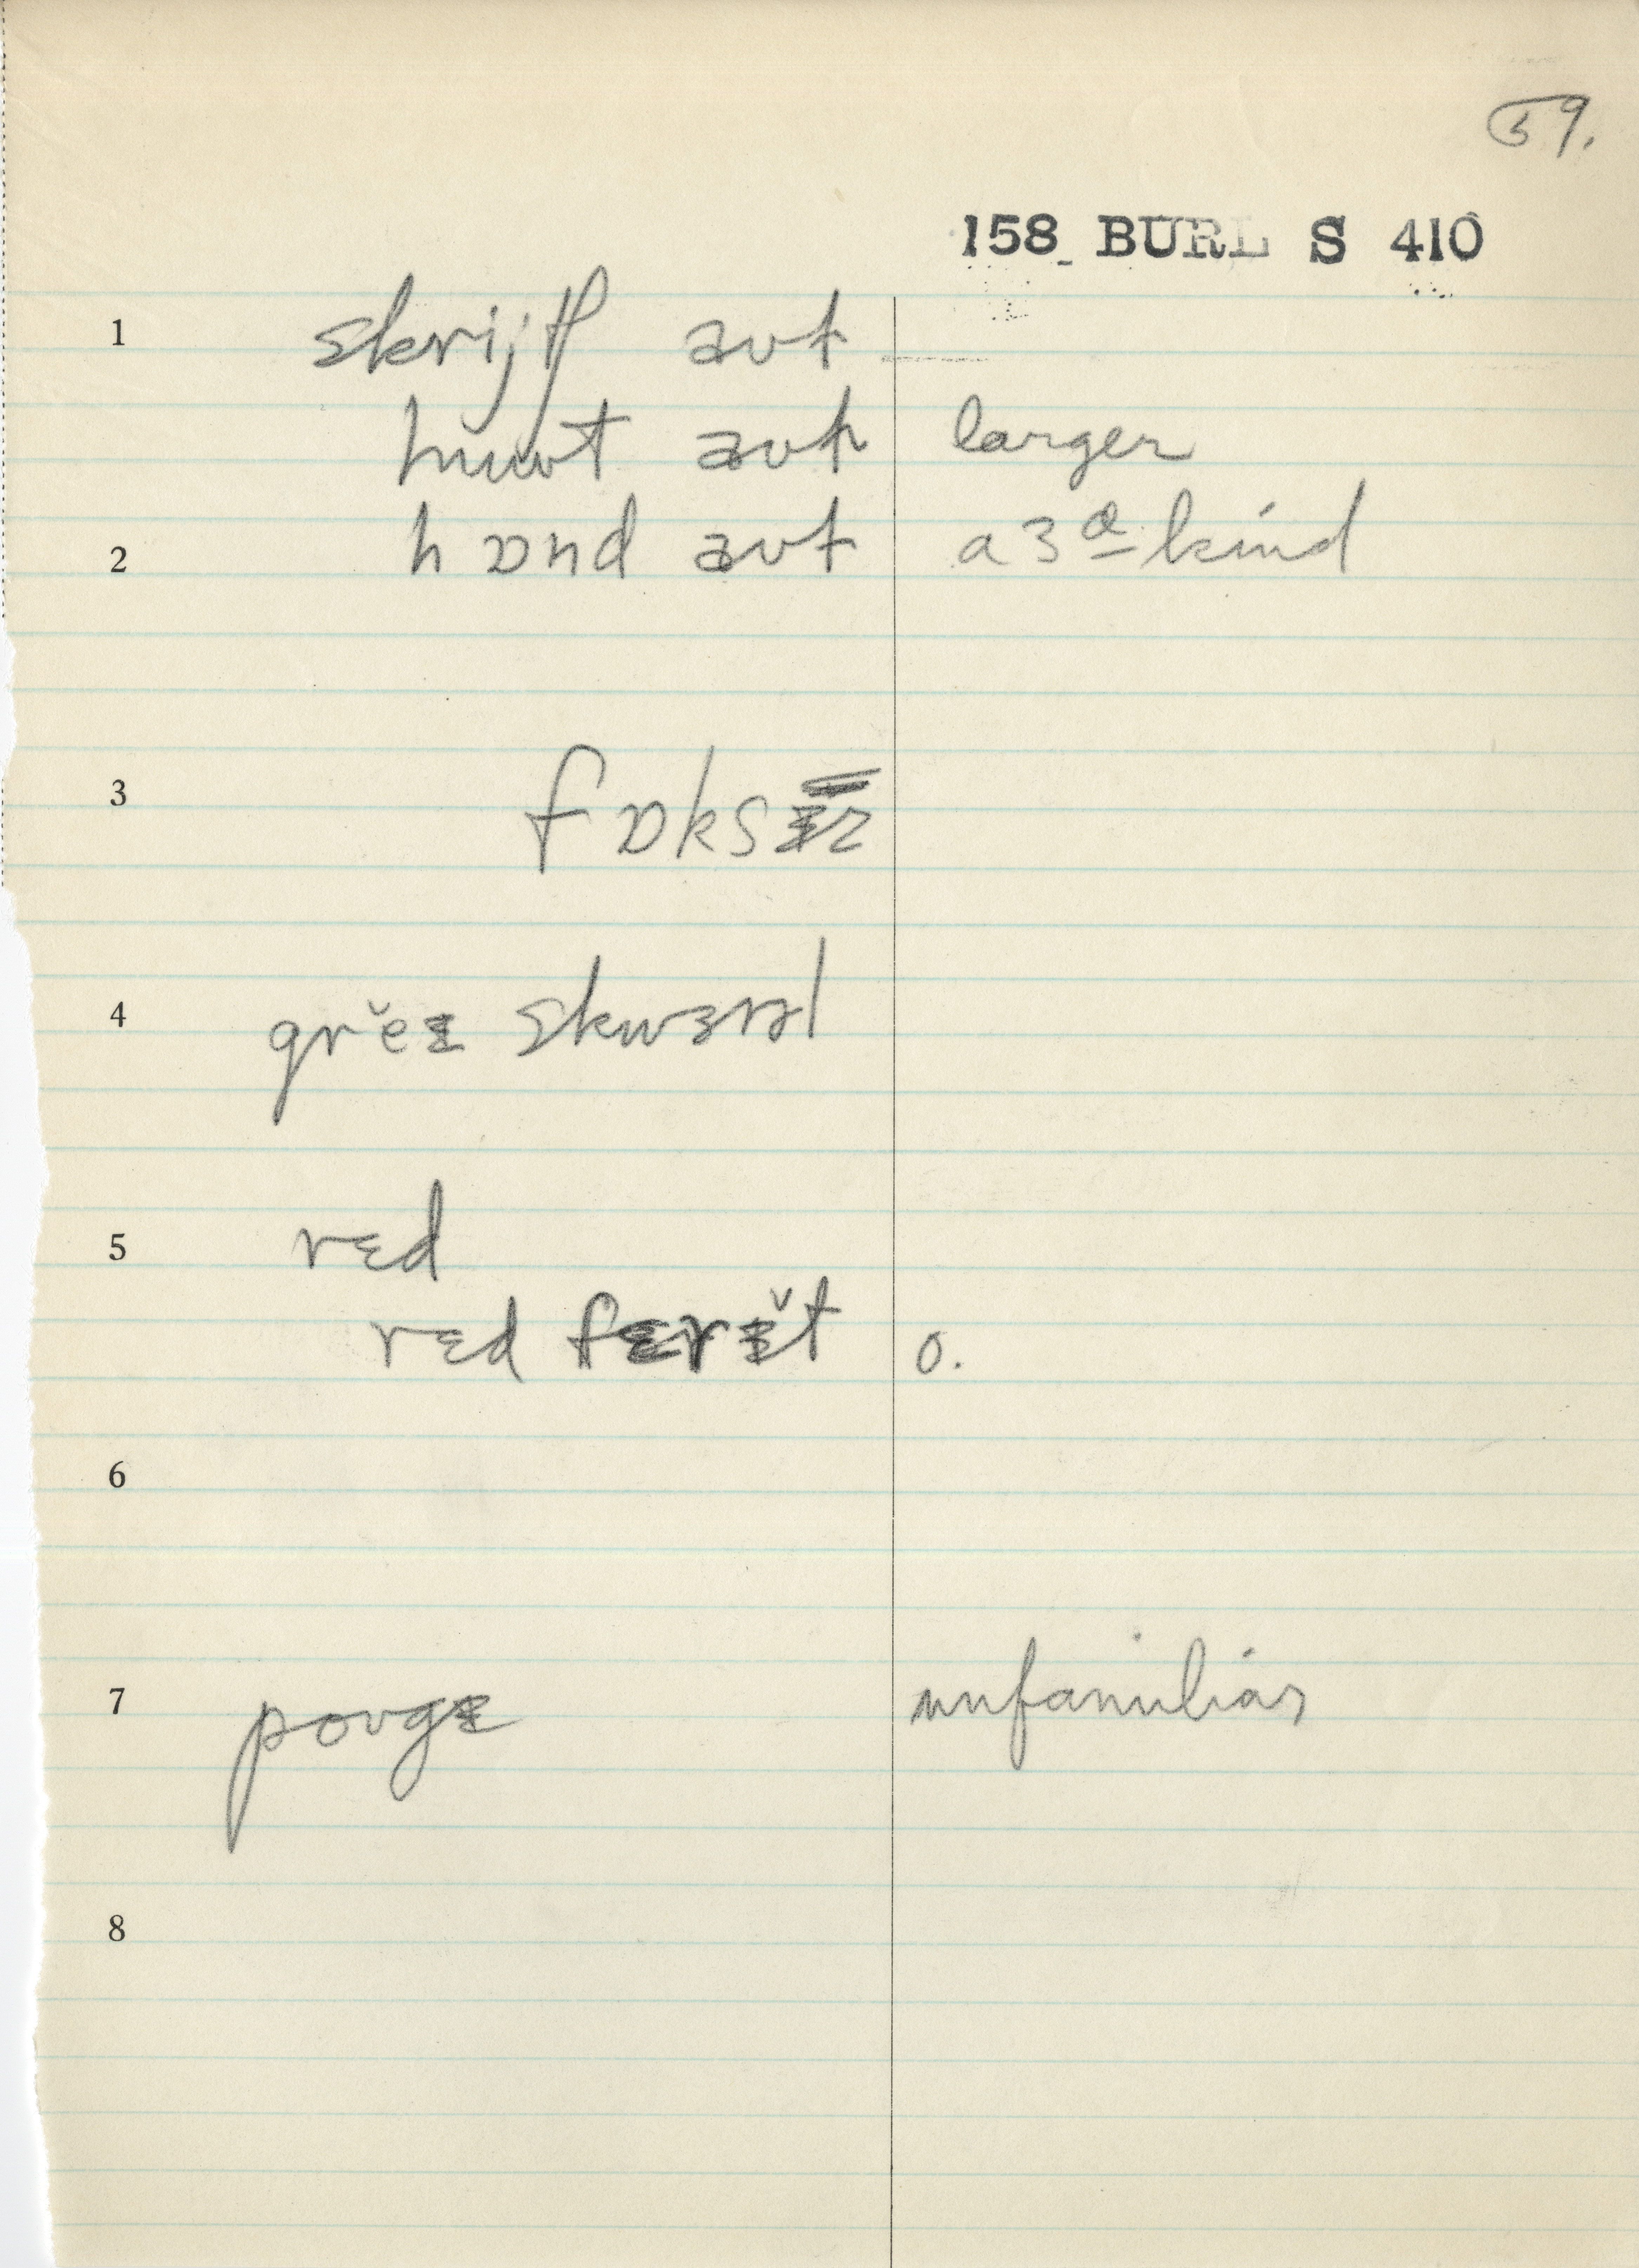 59.
158 BURL S 410
1 skrijtʃ aʊt
huut aʊt larger
2 hɒnd aʊt a 3d kind
3 fɒksɨz
4 greɨ skwɜrəl
5 rɛd
rɛd fɛrɨt o.
6
7 poʊgɨ unfamiliar
8